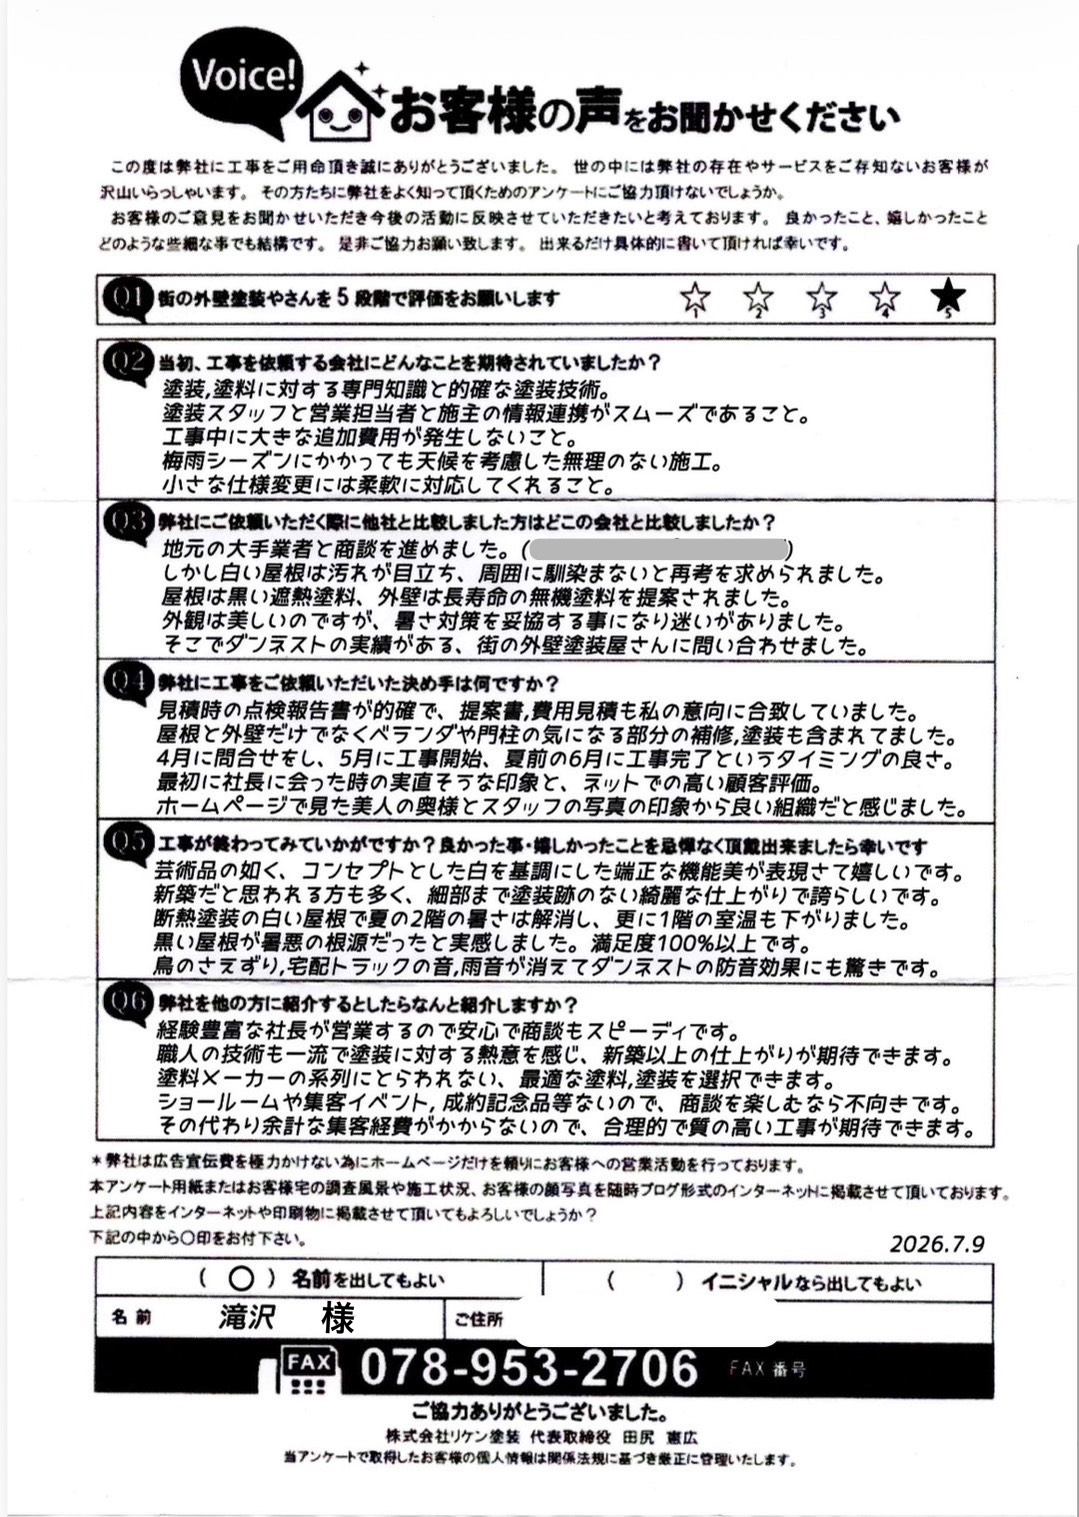 Voice!
お客様の声をお聞かせください
この度は弊社に工事をご用命頂き誠にありがとうございました。 世の中には弊社の存在やサービスをご存知ないお客様が
沢山いらっしゃいます。 その方たちに弊社をよく知って頂くためのアンケートにご協力頂けないでしょうか。
お客様のご意見をお聞かせいただき今後の活動に反映させていただきたいと考えております。 良かったこと、嬉しかったこと
どのような些細な事でも結構です。 是非ご協力お願い致します。 出来るだけ具体的に書いて頂ければ幸いです。
Q1 街の外壁塗装やさんを5段階で評価をお願いします
1 2 3 4 5
Q2 当初、工事を依頼する会社にどんなことを期待されていましたか？
塗装,塗料に対する専門知識と的確な塗装技術。
塗装スタッフと営業担当者と施主の情報連携がスムーズであること。
工事中に大きな追加費用が発生しないこと。
梅雨シーズンにかかっても天候を考慮した無理のない施工。
小さな仕様変更には柔軟に対応してくれること。
Q3 弊社にご依頼いただく際に他社と比較しました方はどこの会社と比較しましたか？
地元の大手業者と商談を進めました。( )
しかし白い屋根は汚れが目立ち、周囲に馴染まないと再考を求められました。
屋根は黒い遮熱塗料、外壁は長寿命の無機塗料を提案されました。
外観は美しいのですが、暑さ対策を妥協する事になり迷いがありました。
そこでダンネストの実績がある、街の外壁塗装屋さんに問い合わせました。
Q4 弊社に工事をご依頼いただいた決め手は何ですか？
見積時の点検報告書が的確で、提案書,費用見積も私の意向に合致していました。
屋根と外壁だけでなくベランダや門柱の気になる部分の補修,塗装も含まれてました。
4月に問合せをし、5月に工事開始、夏前の6月に工事完了というタイミングの良さ。
最初に社長に会った時の実直そうな印象と、ネットでの高い顧客評価。
ホームページで見た美人の奥様とスタッフの写真の印象から良い組織だと感じました。
Q5 工事が終わってみていかがですか？良かった事・嬉しかったことを忌憚なく頂戴出来ましたら幸いです
芸術品の如く、コンセプトとした白を基調にした端正な機能美が表現さて嬉しいです。
新築だと思われる方も多く、細部まで塗装跡のない綺麗な仕上がりで誇らしいです。
断熱塗装の白い屋根で夏の2階の暑さは解消し、更に1階の室温も下がりました。
黒い屋根が暑悪の根源だったと実感しました。満足度100%以上です。
鳥のさえずり,宅配トラックの音,雨音が消えてダンネストの防音効果にも驚きです。
Q6 弊社を他の方に紹介するとしたらなんと紹介しますか？
経験豊富な社長が営業するので安心で商談もスピーディです。
職人の技術も一流で塗装に対する熱意を感じ、新築以上の仕上がりが期待できます。
塗料メーカーの系列にとらわれない、最適な塗料,塗装を選択できます。
ショールームや集客イベント,成約記念品等ないので、商談を楽しむなら不向きです。
その代わり余計な集客経費がかからないので、合理的で質の高い工事が期待できます。
＊弊社は広告宣伝費を極力かけない為にホームページだけを頼りにお客様への営業活動を行っております。
本アンケート用紙またはお客様宅の調査風景や施工状況、お客様の顔写真を随時ブログ形式のインターネットに掲載させて頂いております。
上記内容をインターネットや印刷物に掲載させて頂いてもよろしいでしょうか？
下記の中から〇印をお付下さい。
2026.7.9
( 〇 ) 名前を出してもよい ( ) イニシャルなら出してもよい
名前 滝沢 様 ご住所
FAX 078-953-2706 FAX番号
ご協力ありがとうございました。
株式会社リケン塗装 代表取締役 田尻 憲広
当アンケートで取得したお客様の個人情報は関係法規に基づき厳正に管理いたします。